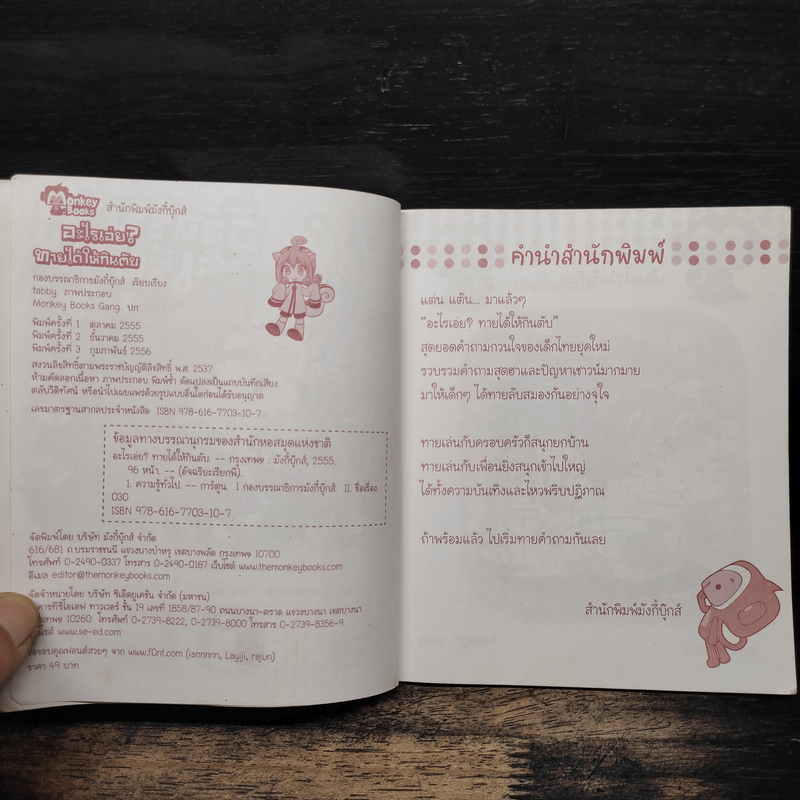 Monkey Books สำนักพิมพ์มังกี้บุ๊กส์
อะไรเอ่ย?
ทายได้ให้กินตับ
กองบรรณาธิการมังกี้บุ๊กส์ เรียบเรียง
tabby ภาพประกอบ
Monkey Books Gang ปก
พิมพ์ครั้งที่ 1 ตุลาคม 2555
พิมพ์ครั้งที่ 2 ธันวาคม 2555
พิมพ์ครั้งที่ 3 กุมภาพันธ์ 2556
สงวนลิขสิทธิ์ตามพระราชบัญญัติลิขสิทธิ์ พ.ศ. 2537
ห้ามคัดลอกเนื้อหา ภาพประกอบ พิมพ์ซ้ำ ดัดแปลงเป็นแถบบันทึกเสียง
ตลับวีดิทัศน์ หรือนำไปเผยแพร่ด้วยรูปแบบอื่นใดก่อนได้รับอนุญาต
เลขมาตรฐานสากลประจำหนังสือ ISBN 978-616-7703-10-7
ข้อมูลทางบรรณานุกรมของสำนักหอสมุดแห่งชาติ
อะไรเอ่ย? ทายได้ให้กินตับ. -- กรุงเทพฯ : มังกี้บุ๊กส์, 2555.
96 หน้า. -- (อัจฉริยะเรียกพี่).
1. ความรู้ทั่วไป. -- การ์ตูน. I กองบรรณาธิการมังกี้บุ๊กส์. II. ชื่อเรื่อง.
030
ISBN 978-616-7703-10-7
จัดพิมพ์โดย บริษัท มังกี้บุ๊กส์ จำกัด
616/681 ถ.บรมราชชนนี แขวงบางบำหรุ เขตบางพลัด กรุงเทพฯ 10700
โทรศัพท์ 0-2490-0337 โทรสาร 0-2490-0187 เว็บไซต์ www.themonkeybooks.com
อีเมล editor@themonkeybooks.com
จัดจำหน่ายโดย บริษัท ซีเอ็ดยูเคชั่น จำกัด (มหาชน)
คารทีซีไอเอฟ ทาวเวอร์ ชั้น 19 เลขที่ 1858/87-90 ถนนบางนา-ตราด แขวงบางนา เขตบางนา
เทพฯ 10260 โทรศัพท์ 0-2739-8222, 0-2739-8000 โทรสาร 0-2739-8356-9
ไซต์ www.se-ed.com
ขอขอบคุณฟอนต์สวยๆ จาก www.f0nt.com (iannnnn, Layiji, rajun)
ราคา 49 บาท
คำนำสำนักพิมพ์
แต่น แต๊น... มาแล้วๆ
"อะไรเอ่ย? ทายได้ให้กินตับ"
สุดยอดคำถามกวนใจของเด็กไทยยุคใหม่
รวบรวมคำถามสุดฮาและปัญหาเชาวน์มากมาย
มาให้เด็กๆ ได้ทายลับสมองกันอย่างจุใจ
ทายเล่นกับครอบครัวก็สนุกยกบ้าน
ทายเล่นกับเพื่อนยิ่งสนุกเข้าไปใหญ่
ได้ทั้งความบันเทิงและไหวพริบปฏิภาณ
ถ้าพร้อมแล้ว ไปเริ่มทายคำถามกันเลย
สำนักพิมพ์มังกี้บุ๊กส์